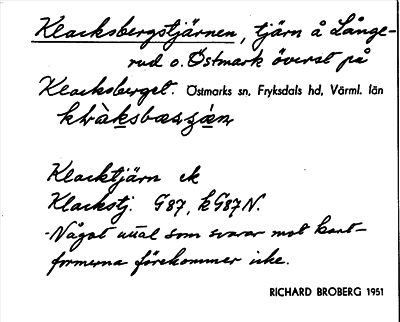 Klacksbergstjärnen, tjärn å Långe-
rud o. Östmark överst på
Klacksberget. Östmarks sn, Fryksdals hd, Värml. län
Klacktjärn ek
Klackstj. G87, kG87N.
Något uttal som svarar mot kart-
formerna förekommer icke.
RICHARD BROBERG 1951